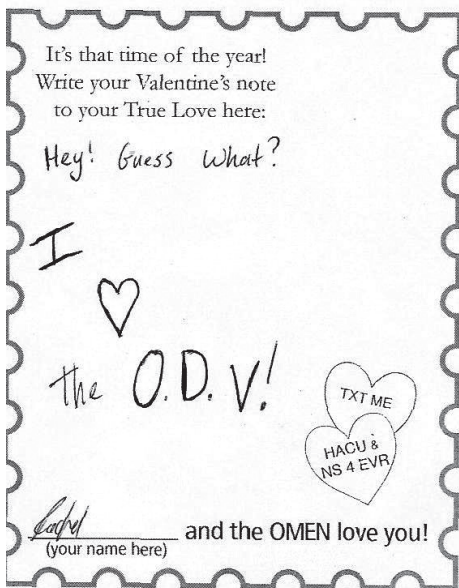 It's that time of the year!
Write your Valentine's note
to your True Love here:
Hey! Guess what?
I
♡
the O.D.V!
TXT ME
HACU &
NS 4 EVR
Rachel and the OMEN love you!
(your name here)